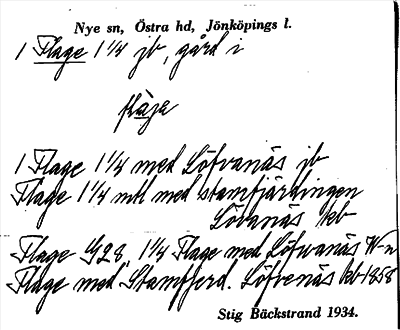 Nye sn, Östra hd, Jönköpings l.
1 Flage 1 1/4 jb, gård i
flaja
1 Flage 1 1/4 med Löfvanäs jb
Flage 1 1/4 mtl med stamfjärdingen
Lövanäs kb
Flage G28, 1 1/4 Flage med Löfwanäs W-n
Flage med Stamfjerd. Löfvenäs kb 1858
Stig Bäckstrand 1934.